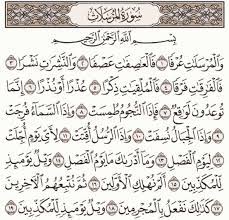 سُورَةُ المُرْسَلَات
بِسْمِ اللَّهِ الرَّحْمَٰنِ الرَّحِيمِ
وَالْمُرْسَلَاتِ عُرْفًا ١ فَالْعَاصِفَاتِ عَصْفًا ٢ وَالنَّاشِرَاتِ نَشْرًا ٣
فَالْفَارِقَاتِ فَرْقًا ٤ فَالْمُلْقِيَاتِ ذِكْرًا ٥ عُذْرًا أَوْ نُذْرًا ٦ إِنَّمَا
تُوعَدُونَ لَوَاقِعٌ ٧ فَإِذَا النُّجُومُ طُمِسَتْ ٨ وَإِذَا السَّمَاءُ فُرِجَتْ
٩ وَإِذَا الْجِبَالُ نُسِفَتْ ١٠ وَإِذَا الرُّسُلُ أُقِّتَتْ ١١ لِأَيِّ يَوْمٍ أُجِّلَتْ
١٢ لِيَوْمِ الْفَصْلِ ١٣ وَمَا أَدْرَاكَ مَا يَوْمُ الْفَصْلِ ١٤ وَيْلٌ يَوْمَئِذٍ
لِلْمُكَذِّبِينَ ١٥ أَلَمْ نُهْلِكِ الْأَوَّلِينَ ١٦ ثُمَّ نُتْبِعُهُمُ الْآخِرِينَ
١٧ كَذَٰلِكَ نَفْعَلُ بِالْمُجْرِمِينَ ١٨ وَيْلٌ يَوْمَئِذٍ لِلْمُكَذِّبِينَ ١٩